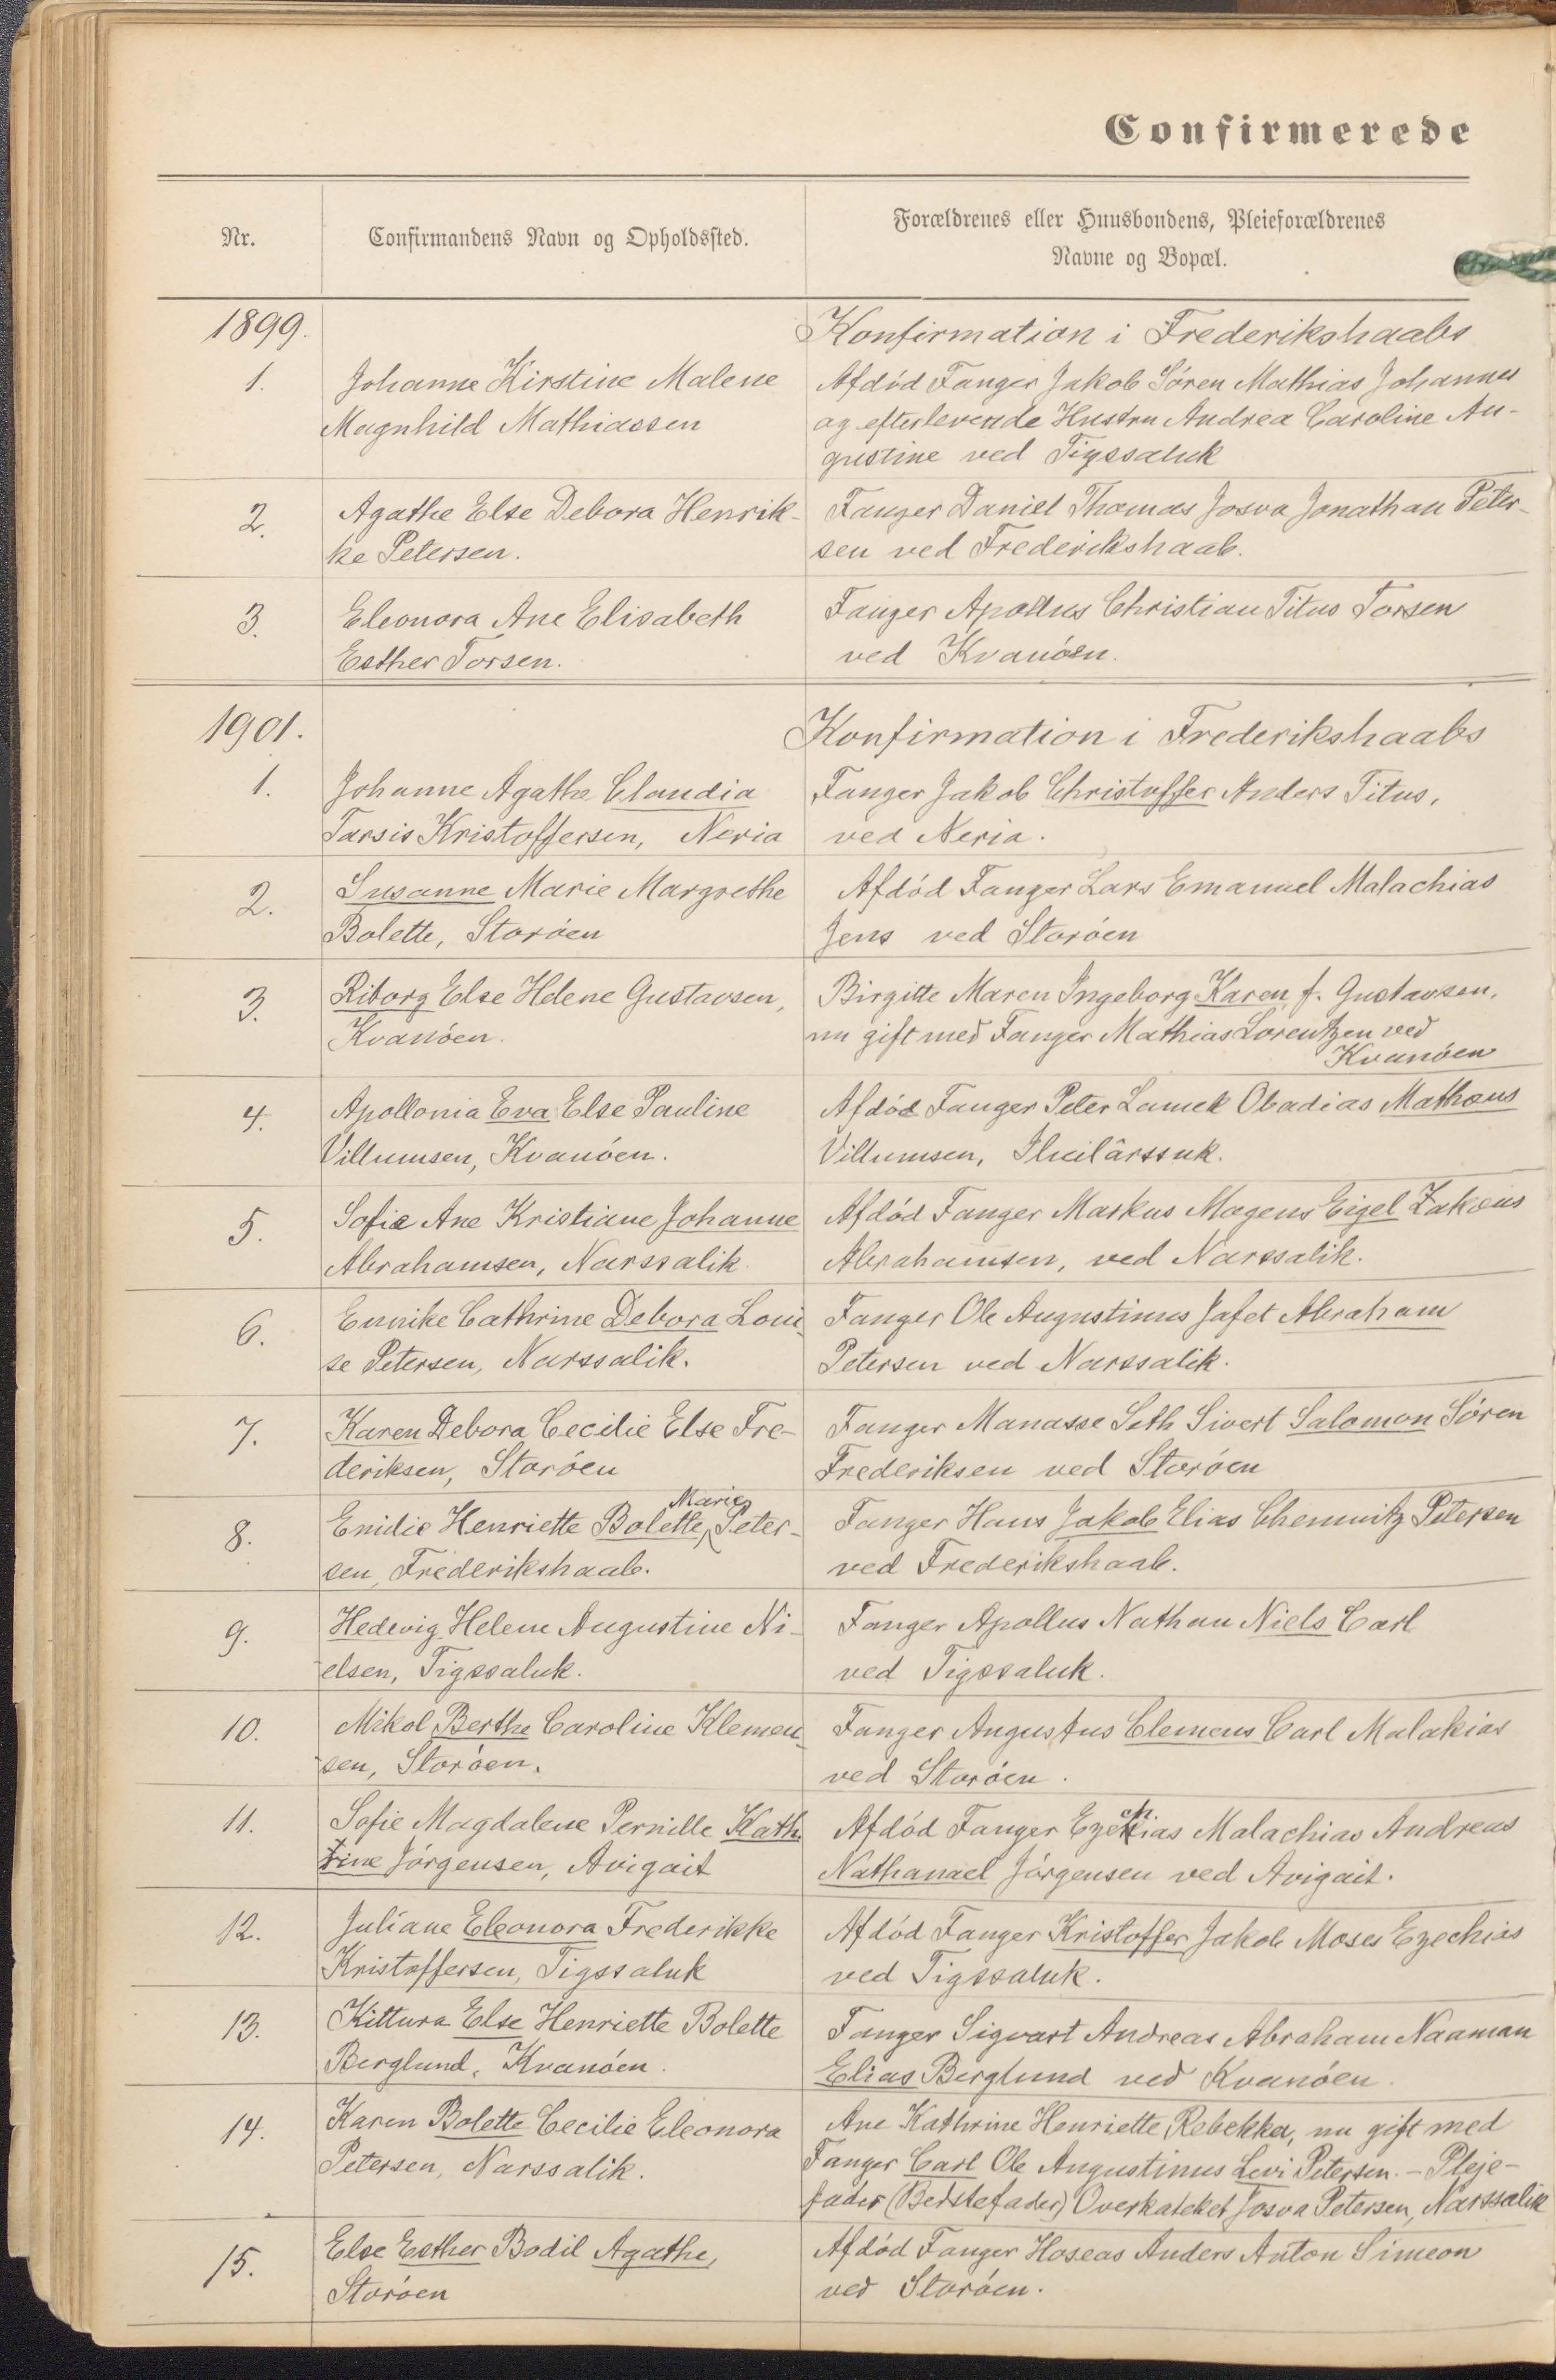 Confirmerede
Nr.
Confirmandens Navn og Opholdssted.
Forældrenes eller Huusbondens, Pleieforældrenes
Navne og Bopæl.
1899.
Konfirmation i Frederikshaabs
1.
Johanne Kirstine Malene
Magnhild Mathiassen
Afdöd Fanger Jakob Sören Mathias Johannes
og efterlevende Hustru Andrea Caroline Au-
gustine ved Tigssaluk
2.
Agathe Else Debora Henrik-
ke Petersen.
Fanger Daniel Thomas Josva Jonathan Peter-
sen ved Frederikshaab.
3.
Eleonora Ane Elisabeth
Esther Torsen.
Fanger Apollus Christian Titus Torsen
ved Kvanöen.
1901.
Konfirmation i Frederikshaabs
1.
Johanne Agathe Claudia
Tarsis Kristoffersen, Neria
Fanger Jakob Christoffer Anders Titus,
ved Neria.
2.
Susanne Marie Margrethe
Bolette, Storöen
Afdöd Fanger Lars Emanuel Malachias
Jens ved Storöen
3.
Riborg Else Helene Gustavsen,
Kvanöen.
Birgitte Maren Ingeborg Karen f. Gustavsen,
nu gift med Fanger Mathias Lorentzen ved
Kvanöen
4.
Apollonia Eva Else Pauline
Villumsen, Kvanöen.
Afdöd Fanger Peter Lamek Obadias Mathæus
Villumsen, Iluilârssuk.
5.
Sofie Ane Kristiane Johanne
Abrahamsen, Narssalik.
Afdöd Fanger Markus Mogens Eigel Zakæus
Abrahamsen, ved Narssalik.
6.
Ennike Cathrine Debora Loui-
se Petersen, Narssalik.
Fanger Ole Augustinus Jafet Abraham
Petersen ved Narssalik.
7.
Karen Debora Cecilie Else Fre-
deriksen, Storöen
Fanger Manasse Seth Sivert Salomon Sören
Frederiksen ved Storöen
8.
Marie
Enidie Henriette Bolette, Peter-
sen, Frederikshaab.
Fanger Hans Jakob Elias Chemnitz Petersen
ved Frederikshaab.
9.
Hedevig Helene Augustine Ni-
elsen, Tigssaluk.
Fanger Apollus Nathan Niels Carl
ved Tigssaluk.
10.
Mikol Berthe Caroline Klemen-
sen, Storöen.
Fanger Augustus Clemens Carl Malakias
ved Storöen.
11.
Sofie Magdalene Pernille Kath-
rine Jörgensen, Avigait
Afdöd Fanger Ezechias Malachias Andreas
Nathanael Jörgensen ved Avigait.
12.
Juliane Eleonora Frederikke
Kristoffersen, Tigssaluk
Afdöd Fanger Kristoffer Jakob Moses Ezechias
ved Tigssaluk.
13.
Kittura Else Henriette Bolette
Berglund, Kvanöen.
Fanger Sigvart Andreas Abraham Naaman
Elias Berglund ved Kvanöen.
14.
Karen Bolette Cecilie Eleonora
Petersen, Narssalik.
Ane Kathrine Henriette Rebekka, nu gift med
Fanger Carl Ole Augustinus Levi Petersen. - Pleje-
fader (Bedstefader) Overkateket Josva Petersen, Narssalik
15.
Else Esther Bodil Agathe,
Storöen
Afdöd Fanger Hoseas Anders Anton Simeon
ved Storöen.